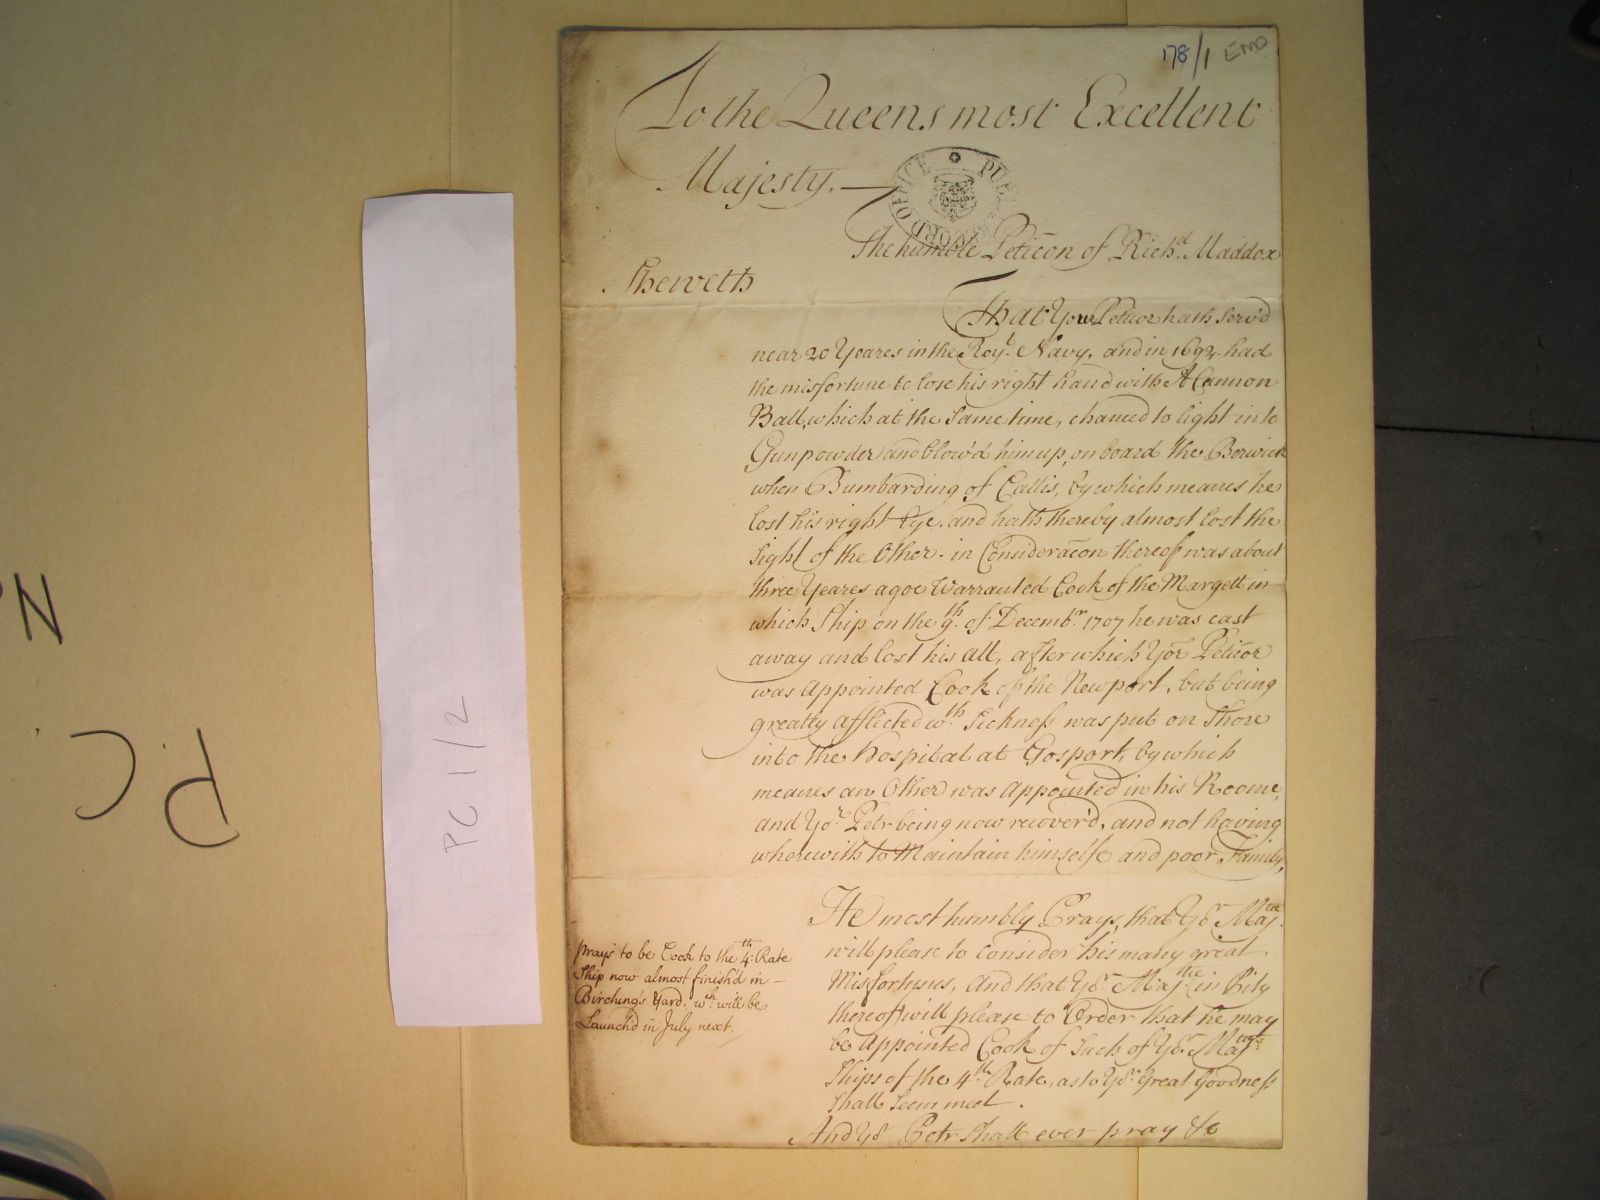 178/1 END
To the Queens most Excellent
Majesty.
OFFICE PUBL
RECORD
The humble Peticōn of Richd. Maddox
Sheweth
That Your Peticor hath serv'd
near 20 Yeares in the Royl. Navy, and in 1692 had
the misfortune to lose his right hand with A Cannon
Ball, which at the same time, chanced to light into
Gunpowder and blow'd him up, on board the Berwick
when Bumbarding of Callis, by which meanes he
lost his right Eye, and hath thereby almost lost the
sight of the Other. in Consideracōn thereof was about
three Yeares agoe Warranted Cook of the Margett in
which Ship on the 9th. of Decembr. 1707 he was cast
away and lost his all, after which Yor Peticor
was Appointed Cook of the Newport, but being
greatly afflicted wth. Sickness was put on Shore
into the Hospital at Gosport, by which
meanes an Other was Appointed in his Roome,
and Yor. Petr being now recover'd, and not having
wherewith to Maintain himselfe and poor Family,
He most humbly Prays, that Yor Majtie.
will please to Consider his many great
Misfortunes, And that Yor Majtie in Pity
thereof will please to Order that he may
be Appointed Cook of Such of Yor Majtys
Ships of the 4th Rate, as to Yor Great Goodness
Shall Seem meet.
And Yor Petr Shall ever pray &c
prays to be Cook to the 4th: Rate
Ship now almost finish'd in
Birching's Yard, wch. will be
Launch'd in July next.
PC 1/2
N
PC